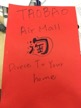 TAOBAO
Air Mail
淘
Direct To Your
home